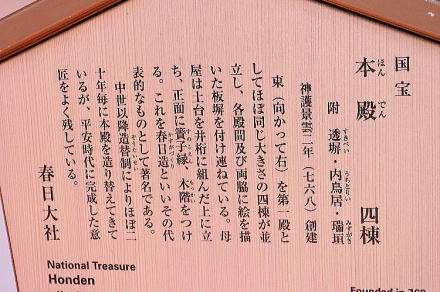 国宝
本殿 四棟
ほん でん
附 透塀・内鳥居・瑞垣
すきべい うちとりい みずがき
神護景雲二年（七六八）創建
東（向かって右）を第一殿と
してほぼ同じ大きさの四棟が並
立し、各殿間及び両脇に絵を描
いた板塀を付け連ねている。母
屋は土台を井桁に組んだ上に立
ち、正面に簀子縁、木階をつけ
る。これを春日造といいその代
表的なものとして著名である。
中世以降造替制によりほぼ二
十年毎に本殿を造り替えてきて
いるが、平安時代に完成した意
匠をよく残している。
春日大社
National Treasure
Honden
Founded in 768